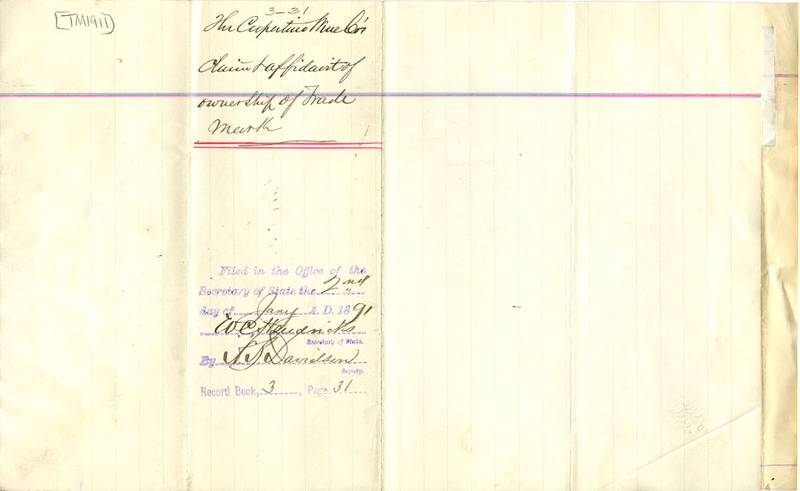 [TM1911]
3-31
The Cupertino Wine Co's
Claim & affidavit of
ownership of Trade
Mark
Filed in the Office of the
Secretary of State the 2nd
day of Jany A.D. 1891
W C Hendricks
Secretary of State.
By Davidson
Deputy.
Record Book, 3, Page 31